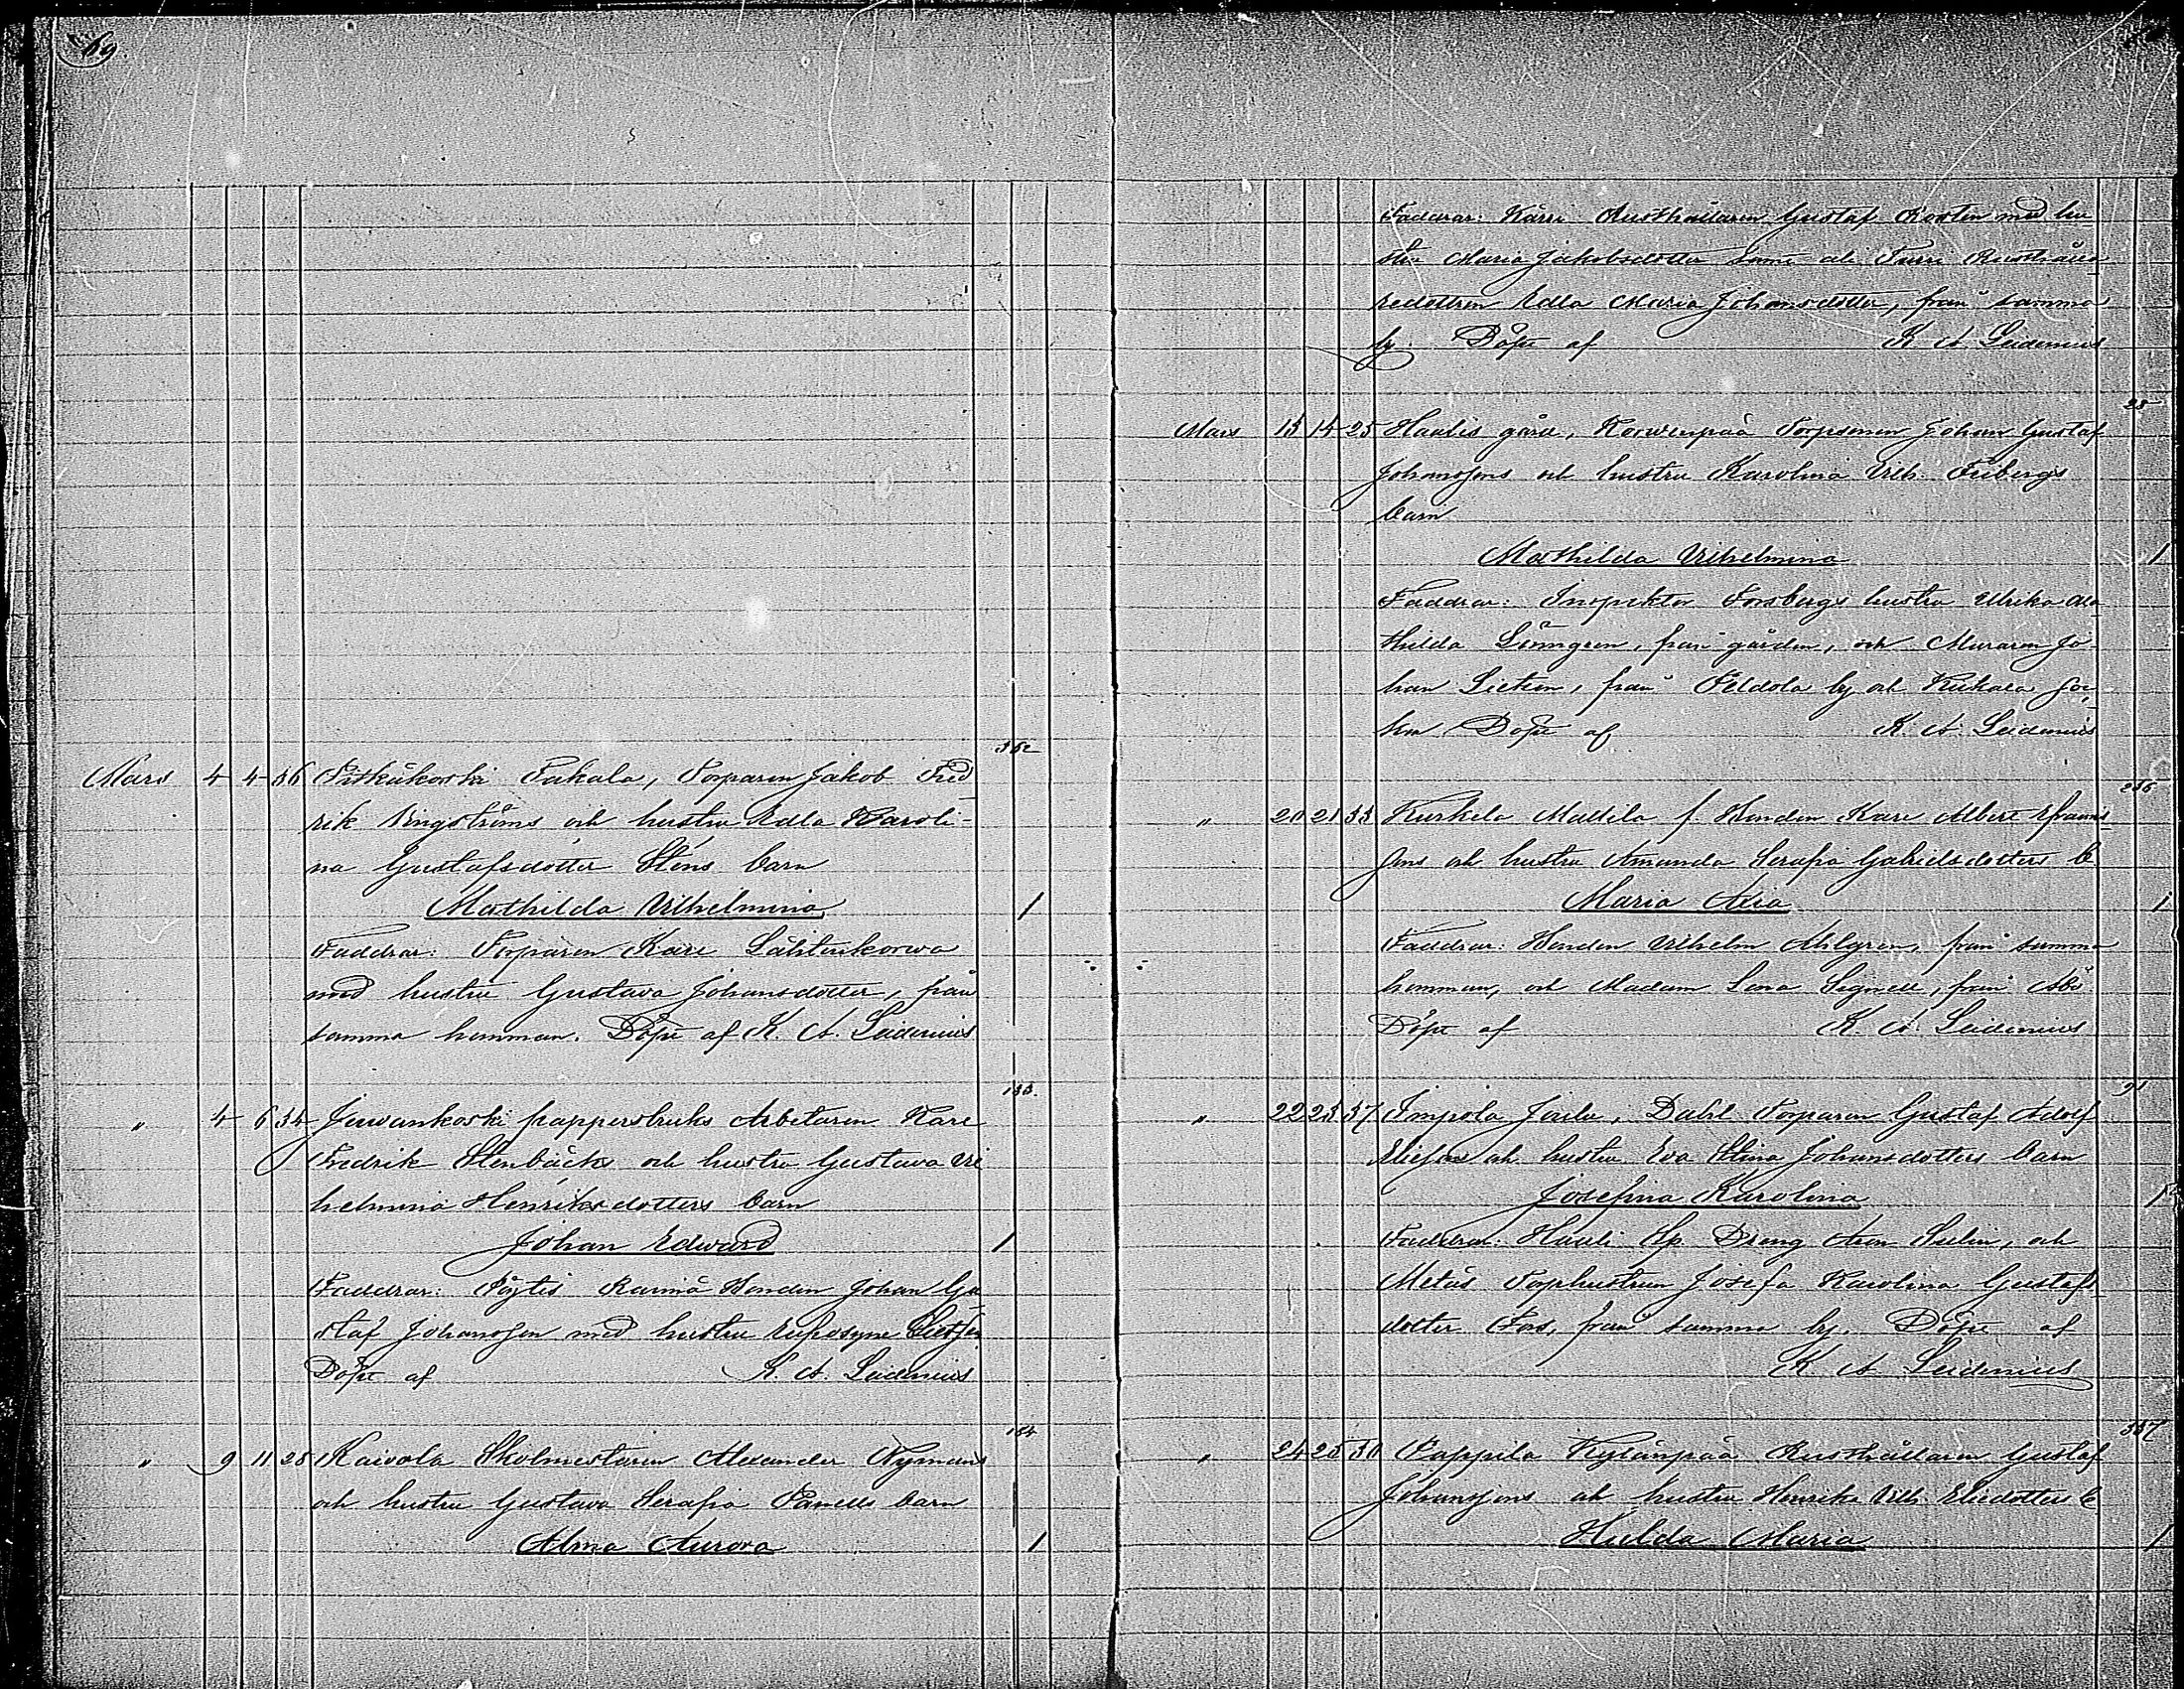 69
352
Mars 4 4 36 Pitkäkoski Pukala, Torparen Jakob Fred
rik Vingströms och hustru Edla Karoli-
na Gustafsdotter Stens barn
Mathilda Vilhelmina 1
Faddrar: Torparen Karl Lähteenkorva
med hustru Gustava Johansdotter, från
samma hemman. Döpt af K. A. Leidenius
133
" 4 6 34 Juvankoski pappersbruks Arbetaren Karl
Fredrik Stenbäcks och hustru Gustava Vil
helmina Henriksdotters barn
Johan Edward 1
Faddrar: Pöytis Raimä Bonden Johan Gu
staf Johansson med hustru Eufrosyne
Döpt af K. A. Leidenius
154
" 9 11 28 Kaivola Skolmestaren Alexander Nymans
och hustru Gustava Serafia Panells barn
Alma Aurora 1
Faddrar: Karri Rusthållaren Gustaf Rostén med hu
stru Maria Jakobsdotter samt och Turri Rusthålla
redottren Edla Maria Johansdotter, från samma
by. Döpt af K A Leidenius
23
Mars 13 14 25 Haalis gård, Korvenpää Torparen Johan Gustaf
Johanssons och hustru Karolina Vilh. Fribergs
barn
Mathilda Vilhelmina 1
Faddrar: Inspektor Forsbergs hustru Ulrika Ma
thilda Lönngren, från gården, och Muraren Jo-
han Lietzén, från Peldola by och Kiikala soc
ken Döpt af K. A. Leidenius
236
" 20 21 33 Kurkela Mattila f. Bonden Karl Albert Efraims
sons och hustru Amanda Serafia Gabrielsdotters b
Maria Axia 1
Faddrar: Bonden Vilhelm Ahlgren, från samma
hemman, och Madam Lena Signell, från Åbo
Döpt af K. A. Leidenius
91
" 22 23 37 Impola Jaska, Dahl Torparen Gustaf Adolf
Eliessons och hustru Eva Stina Johansdotters barn
Josefina Karolina 1
Faddrar: Haali Sp. Dreng Aron Salin, och
Metäs Torphustrun Josefa Karolina Gustafs
dotter Fors, från samma by. Döpt af
K A Leidenius
337
" 24 25 30 Pappila Kylänpää Rusthållaren Gustaf
Johanssons och hustru Henrika Vilh. Eliedotters b
Hulda Maria 1